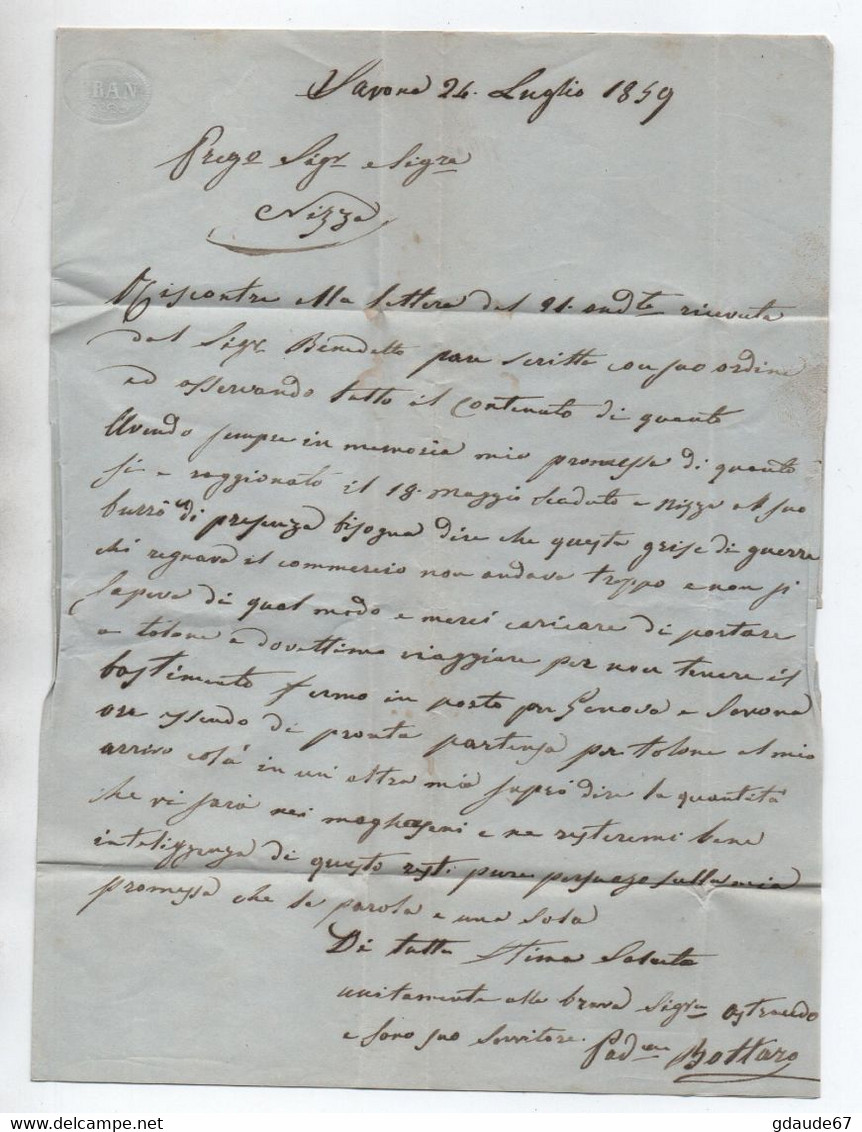 BAN
Savona 24. Luglio 1859
Prego Sigr e Sigra
Nizza
Riscontro alla lettera del 21. andte ricevuta
dal Sigr. Benedetto pare scritta con suo ordine
ed osservando tutto il contenuto di quanto
Avendo sempre in memoria mio promessa di quanto
si e raggionato il 18. maggio scaduto a Nizza al suo
burrò di presenza bisogna dire che questa grise di guerra
chi regnava il commercio non andava troppo e non si
sapeva di qual modo e merci caricare di portare
a tolone e dovettimo viaggiare per non tenere il
bastimento fermo in porto per Genova e Savona
ore essendo di pronta partenza per tolone al mio
arrivo colà in un altra mia saprò dire la quantità
che vi sarà nei maghazeni e ne resteremi bene
inteligenza di questo resti pure persuazo sulla mia
promessa che la parola e una sola
Di tutta stima Saluta
unitamente alla brava Sigra
e sono suo servitore. Padne Bottaro
gdaude67